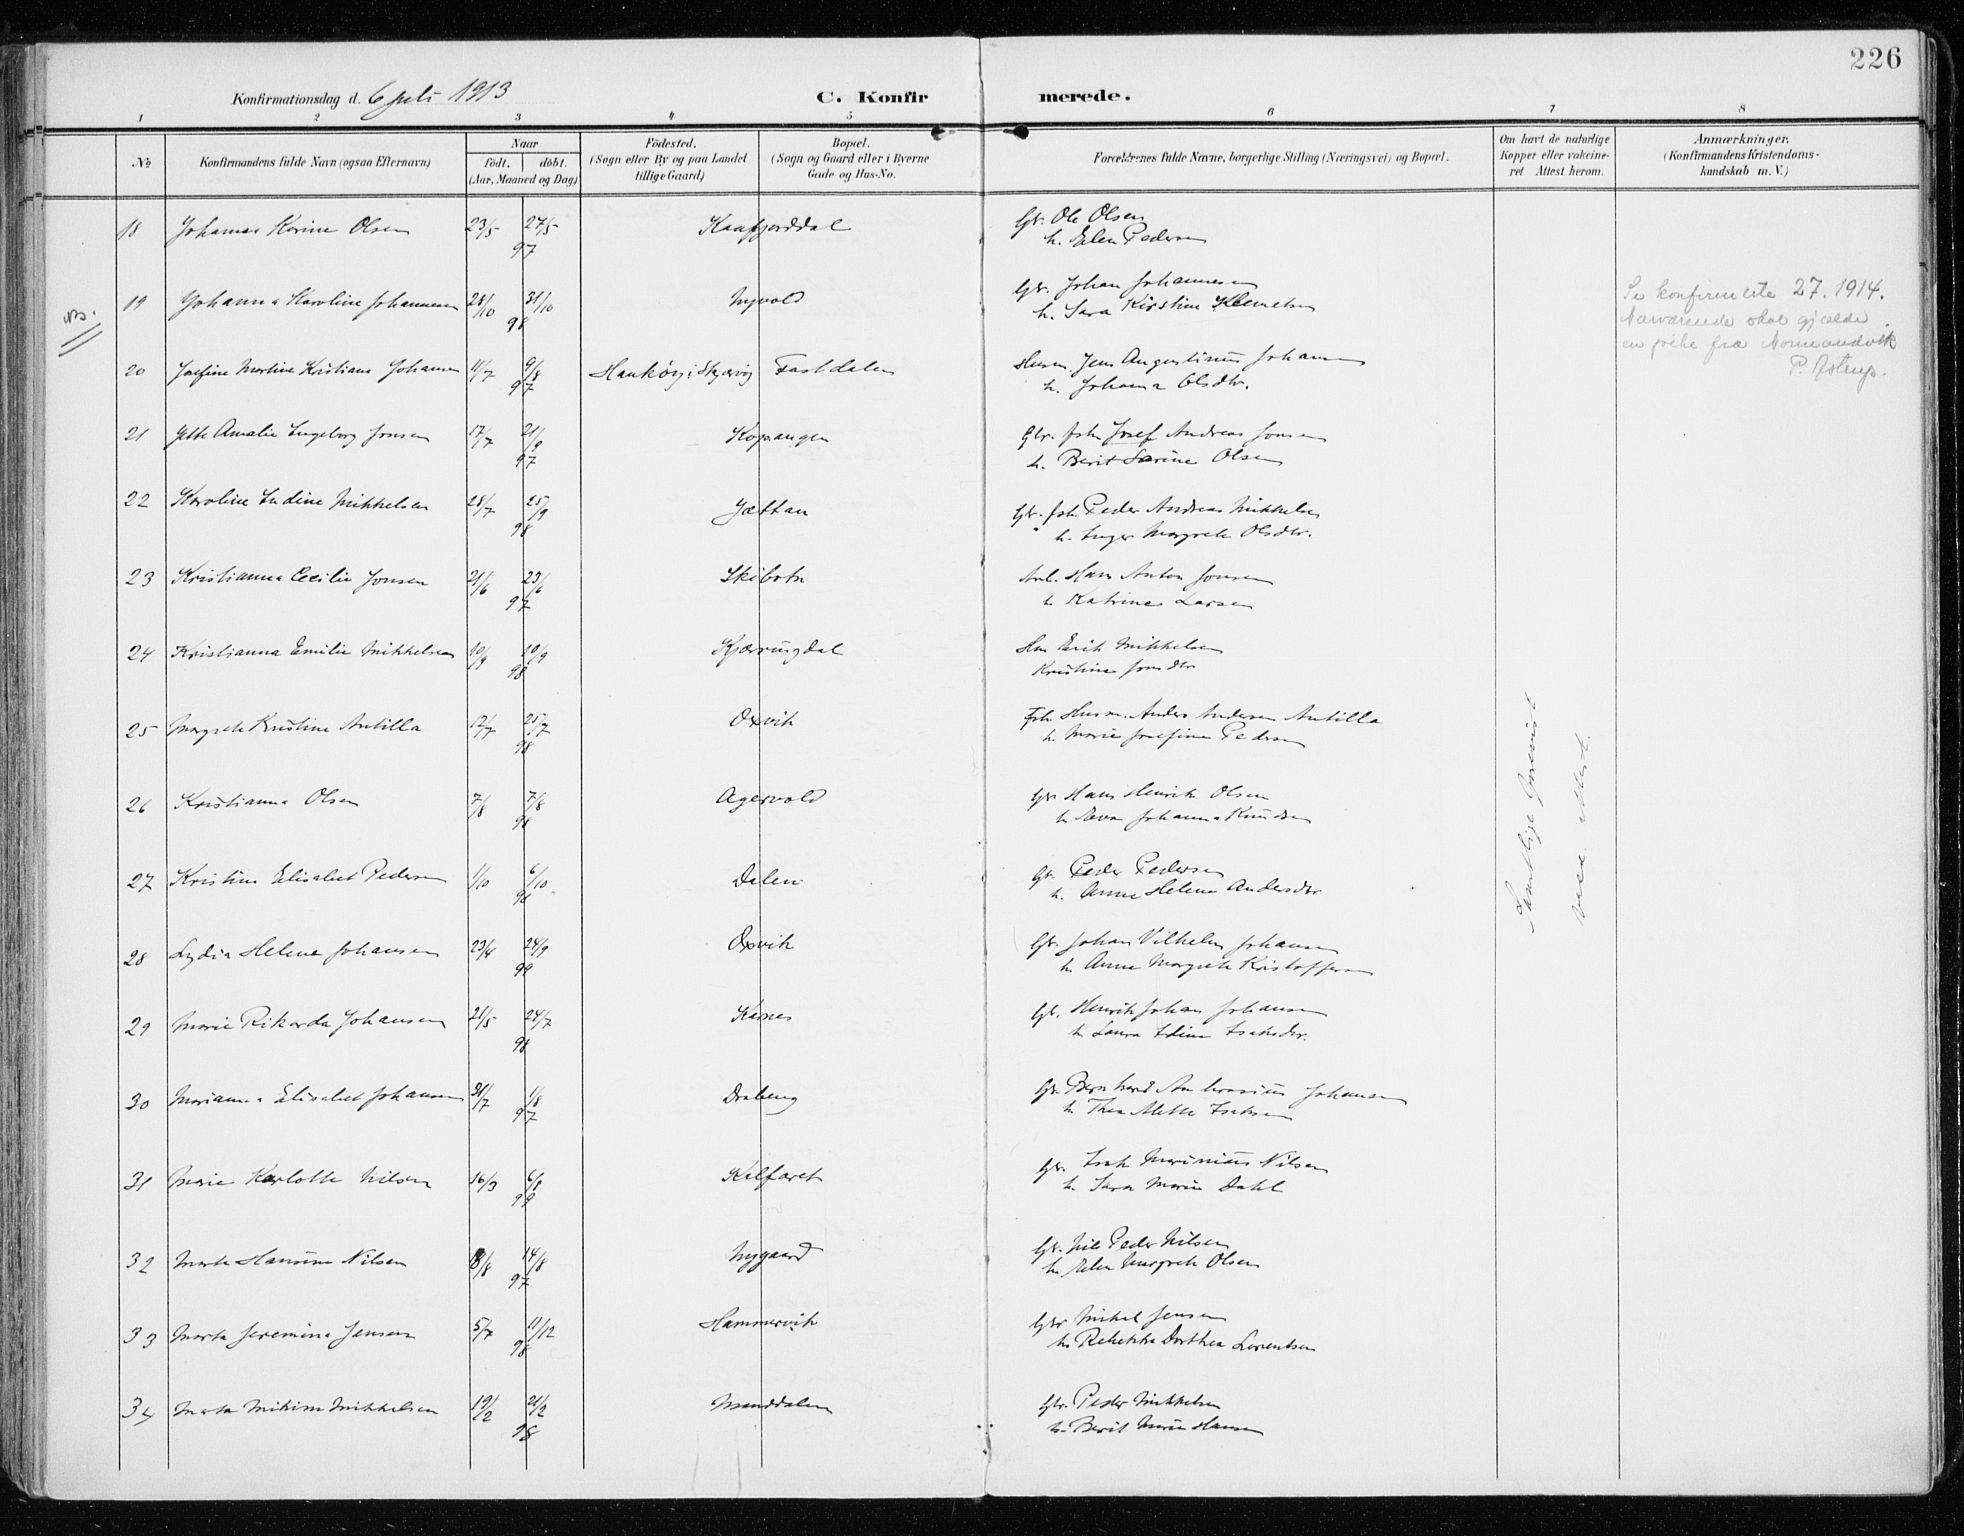 226
Konfirmationsdag d. 6 juli 1913
C. Konfirmerede.
1 2 3 4 5 6 7 8
No
Konfirmandens fulde Navn (ogsaa Efternavn)
Naar
født. døbt.
(Aar, Maaned og Dag)
Fødested.
(Sogn eller By og paa Landet
tillige Gaard)
Bopæl.
(Sogn og Gaard eller i Byerne
Gade og Hus-No.
Forældrenes fulde Navne, borgerlige Stilling (Næringsvei) og Bopæl.
Om havt de naturlige
Kopper eller vakcine-
ret Attest herom.
Anmærkninger.
(Konfirmandens Kristendoms-
kundskab m. V.)
18 Johanna Karine Olsen 23/5 27/5 97 Kaafjorddal Gbr. Ole Olsen
h. Elen Pedersen
NB.
19 Johanna Karoline Johannesen 28/10 31/10 98 Nyvold Gbr. Johan Johannesen
h. Sara Kirstine Klemetsen
Se konfirmerte 27. 1914.
Nærværende skal gjælde
en pike fra Normandvik
P. Astrup.
20 Josefine Martine Kristiane Johansen 11/7 9/8 97 Haukøy i Skjervøy Fastdalen Husm. Jens Augustinus Johansen
h. Johanna Olsdtr.
21 Jette Amalie Ingeborg Jonsen 17/7 21/9 97 Kopangen Gbr. fsh. Josef Andreas Jonsen
h. Berit Sarine Olsen
22 Karoline Indine Mikkelsen 28/7 25/9 98 Jættan Gbr. fsh. Peder Andreas Mikkelsen
h. Inger Margrete Olsdtr.
23 Kristianna Cecilie Jonsen 21/6 23/6 97 Skibotn Arb. Hans Anton Jonsen
h. Katrine Larsen
24 Kristianna Emilie Mikkelsen 10/9 10/9 98 Kjærringdal Hm Erik Mikkelsen
Kristine Jonsdtr
25 Margrete Kristine Antilla 12/7 25/7 98 Oxvik Fsh. Husm. Anders Andersen Antilla
h. Marie Josefine Pedersen
26 Kristianna Olsen 7/8 7/8 98 Agervold Gbr Hans Henrik Olsen
h. Johanna Knudsen
27 Kristine Elisabet Pedersen 1/10 6/10 98 Dalen Gbr. Peder Pedersen
h. Anne Helene Andersdtr
28 Lydia Helene Johansen 23/4 24/9 99 Oxvik Gbr. Johan Vilhelm Johansen
h. Anne Margrete Kristoffersen
29 Marie Rikarda Johansen 21/5 24/7 98 Karnes Gbr. Henrik Johan Johansen
h. Laura Edine Isaksdtr.
30 Marianna Elisabet Johansen 31/7 1/8 97 Draberg Gbr. Bernhard Ambrosius Johansen
h. Thea Mette Isaksen
31 Marie Karlotte Nilsen 16/3 6/8 99 Kilfaret Gbr. Isak Marinius Nilsen
h. Sara Marie Dahl
32 Marte Hansine Nilsen 8/8 14/8 97 Nygaard Gbr. Nils Peder Nilsen
h. Elen Margrete Olsen
33 Marta Jeremina Jensen 5/7 11/12 98 Hammervik Gbr Mikal Jensen
h. Rebekka Dorthea Lorentsen
34 Marta Mikkelsen 19/2 21/2 98 Manddalen Gbr. Peder Mikkelsen
h. Berit Marie Hansen
Samtlige